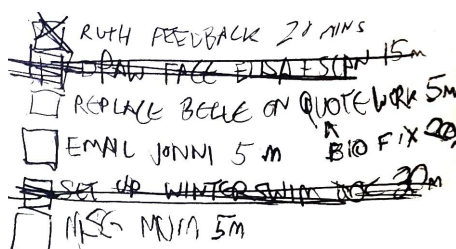 RUTH FEEDBACK 20 MINS
DRAW FACE ELISA + SCAN 15m
REPLACE BELLE ON QUOTE WORK 5m
EMAIL JONNI 5 m
BIO FIX
SET UP WINTER SWIM DOC 30m
MSG MNIM 5m